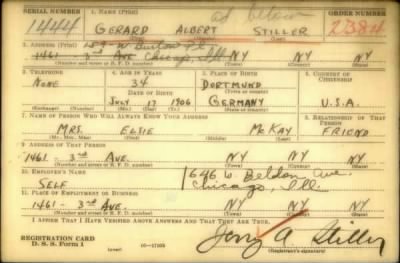 SERIAL NUMBER 1. NAME (Print) ORDER NUMBER
1444 GERARD ALBERT STILLER 2384
(First) (Middle) (Last)
2. ADDRESS (Print)
159 W Burton Pl
1461 - 3rd AVE Chicago, Ill. NY NY
(Number and street or R. F. D. number) (Town) (County) (State)
3. TELEPHONE 4. AGE IN YEARS 5. PLACE OF BIRTH 6. COUNTRY OF CITIZENSHIP
NONE 34 DORTMUND
DATE OF BIRTH (Town or county)
JULY 17 1906 GERMANY U.S.A.
(Exchange) (Number) (Mo.) (Day) (Yr.) (State or country)
7. NAME OF PERSON WHO WILL ALWAYS KNOW YOUR ADDRESS 8. RELATIONSHIP OF THAT PERSON
MRS. ELSIE MCKAY FRIEND
(Mr., Mrs., Miss) (First) (Middle) (Last)
9. ADDRESS OF THAT PERSON
1461 - 3rd AVE. NY NY NY
(Number and street or R. F. D. number) (Town) (County) (State)
10. EMPLOYER'S NAME
SELF 646 W. Belden Ave.
Chicago, Ill.
11. PLACE OF EMPLOYMENT OR BUSINESS
1461 - 3rd AVE. NY NY NY
(Number and street or R. F. D. number) (Town) (County) (State)
I AFFIRM THAT I HAVE VERIFIED ABOVE ANSWERS AND THAT THEY ARE TRUE.
REGISTRATION CARD
D. S. S. Form 1 (over) 16-17105
Jerry A Stiller
(Registrant's signature)